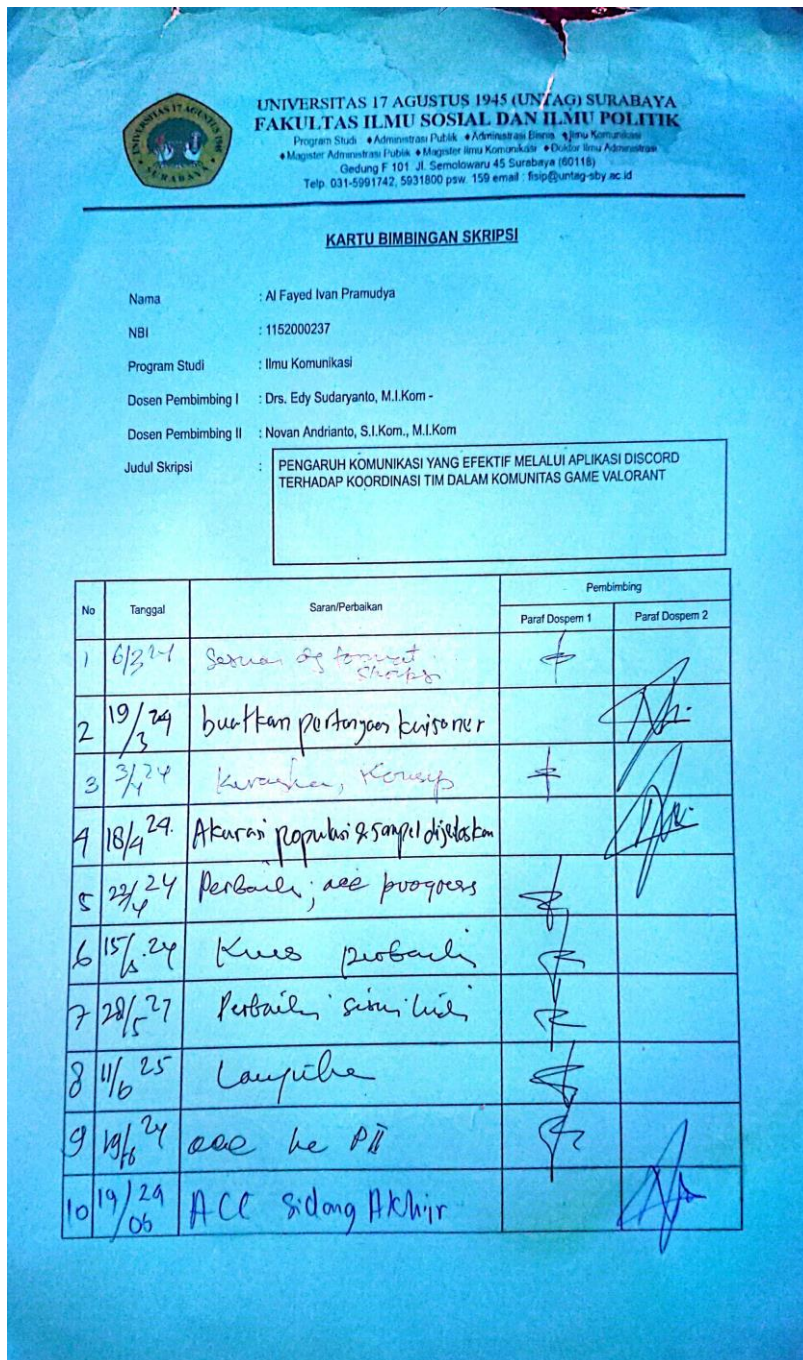 UNIVERSITAS 17 AGUSTUS 1945
SURABAYA
UNIVERSITAS 17 AGUSTUS 1945 (UNTAG) SURABAYA
FAKULTAS ILMU SOSIAL DAN ILMU POLITIK
Program Studi ♦Administrasi Publik ♦Administrasi Bisnis ♦Ilmu Komunikasi
♦Magister Administrasi Publik ♦Magister Ilmu Komunikasi ♦Doktor Ilmu Administrasi
Gedung F 101 Jl. Semolowaru 45 Surabaya (60118)
Telp. 031-5991742, 5931800 psw. 159 email : fisip@untag-sby.ac.id
KARTU BIMBINGAN SKRIPSI
Nama : Al Fayed Ivan Pramudya
NBI : 1152000237
Program Studi : Ilmu Komunikasi
Dosen Pembimbing I : Drs. Edy Sudaryanto, M.I.Kom -
Dosen Pembimbing II : Novan Andrianto, S.I.Kom., M.I.Kom
Judul Skripsi : PENGARUH KOMUNIKASI YANG EFEKTIF MELALUI APLIKASI DISCORD
TERHADAP KOORDINASI TIM DALAM KOMUNITAS GAME VALORANT
No Tanggal Saran/Perbaikan Pembimbing
Paraf Dospem 1 Paraf Dospem 2
1 6/3 24 Sesuai dg format
2 19/3 24 buatkan pertanyaan kuisoner
3 3/4 24 Konsep
4 18/4 24. Akurasi populasi & sampel dijelaskan
5 22/4 24 Perbaiki; acc progress
6 15/5.24 Kues perbaiki
7 28/5 27 Perbaiki
8 11/6 25
9 19/6 24 acc ke P II
10 19/06 24 ACC Sidang Akhir